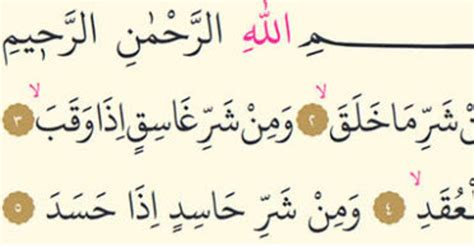 ـمِ اللّٰهِ الرَّحْمٰنِ الرَّحٖيمِ
نْ شَرِّ مَا خَلَقَۙ ﴿٢﴾ وَمِنْ شَرِّ غَاسِقٍ اِذَا وَقَبَۙ ﴿٣﴾
لْعُقَدِۙ ﴿٤﴾ وَمِنْ شَرِّ حَاسِدٍ اِذَا حَسَدَ ﴿٥﴾